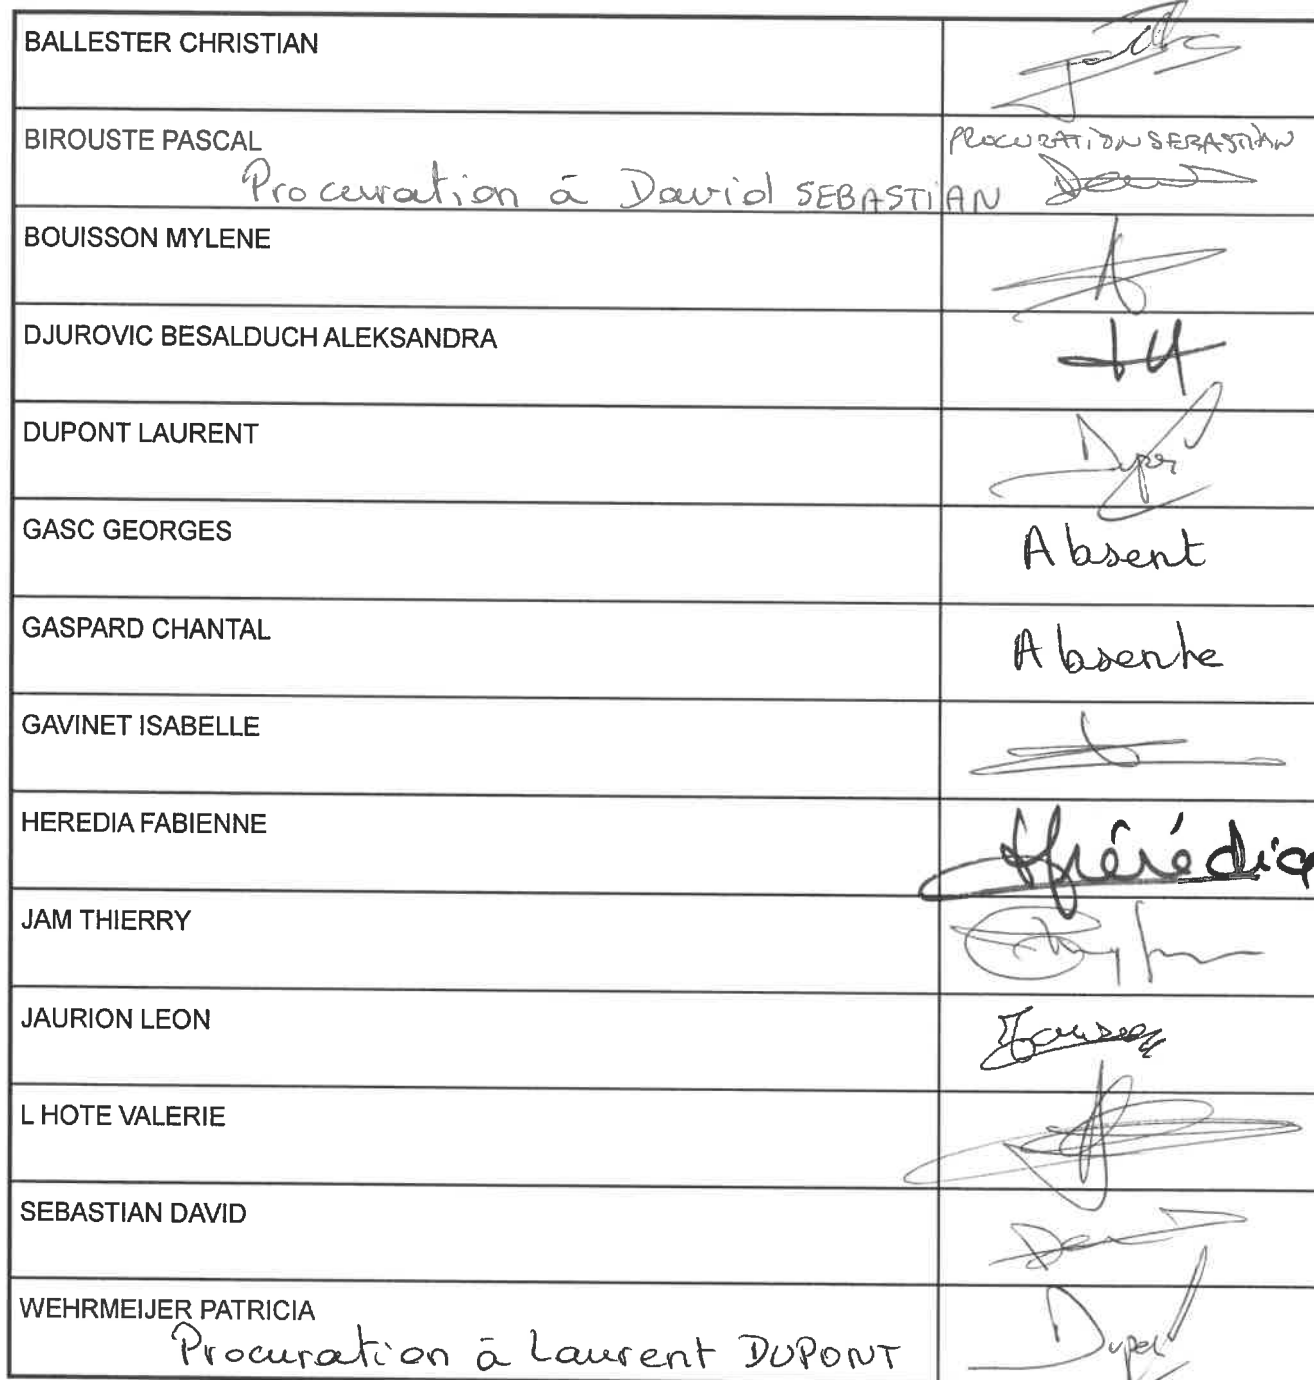 BALLESTER CHRISTIAN
BIROUSTE PASCAL
PROCURATION SEBASTIAN
Procuration à David SEBASTIAN
BOUISSON MYLENE
DJUROVIC BESALDUCH ALEKSANDRA
DUPONT LAURENT
GASC GEORGES
Absent
GASPARD CHANTAL
Absente
GAVINET ISABELLE
HEREDIA FABIENNE
JAM THIERRY
JAURION LEON
L HOTE VALERIE
SEBASTIAN DAVID
WEHRMEIJER PATRICIA
Procuration à Laurent DUPONT